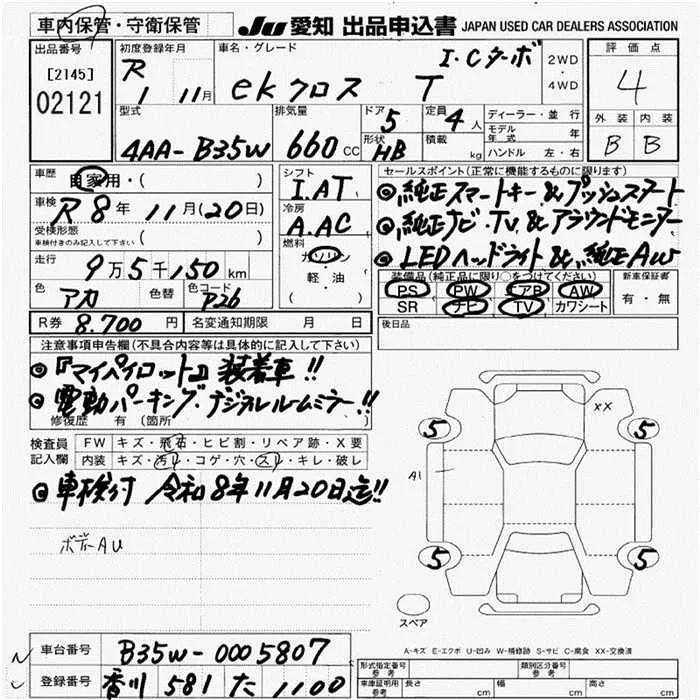 車内保管・守衛保管
JU 愛知 出品申込書 JAPAN USED CAR DEALERS ASSOCIATION
出品番号 初度登録年月 車名・グレード 評価点
[2145] R 1 11月 ekクロス I・Cターボ T 2WD・4WD 4
02121
型式 排気量 ドア 定員 ディーラー・並行 外装 内装
4AA-B35W 660cc 5 4人 モデル年式 年 B B
形状 HB 積載 kg ハンドル 左・右
車歴 自家用・( ) シフト I.AT セールスポイント(正常に機能するものに限ります)
車検 R8年11月(20日) 冷房 A.AC ◎純正スマートキー&プッシュスタート
受検形態 車検付きのみ記入して下さい ( ) ◎純正ナビ・TV&アラウンドモニター
走行 9万5千150km 燃料 ガソリン 軽油 ( ) ◎LEDヘッドライト&純正AW
色 アカ 色替 色コード P26 装備品(純正品に限り○をつけてください) 新車保証書
PS PW エアB AW 有・無
SR ナビ TV カワシート
R券 8.700円 名変通知期限 月 日 後日品
注意事項申告欄(不具合内容等は具体的に記入して下さい)
◎『マイパイロット』装着車!!
◎電動パーキング・デジタルルームミラー!!
修復歴 有(箇所 )
検査員記入欄 FW キズ・飛石・ヒビ割・リペア跡・X要
内装 キズ・汚れ・コゲ・穴・スレ・キレ・破レ
◎車検付 令和8年11月20日迄!!
ボデーAU
XX
5 5
A1
5 5
スペア
A-キズ E-エクボ U-凹み W-補修跡 S-サビ C-腐食 XX-交換済
車台番号 B35W-0005807
登録番号 香川 581 た 1100
形式指定番号 参考 類別区分番号 参考
車庫証明用 参考 長さ cm 幅 cm 高さ cm